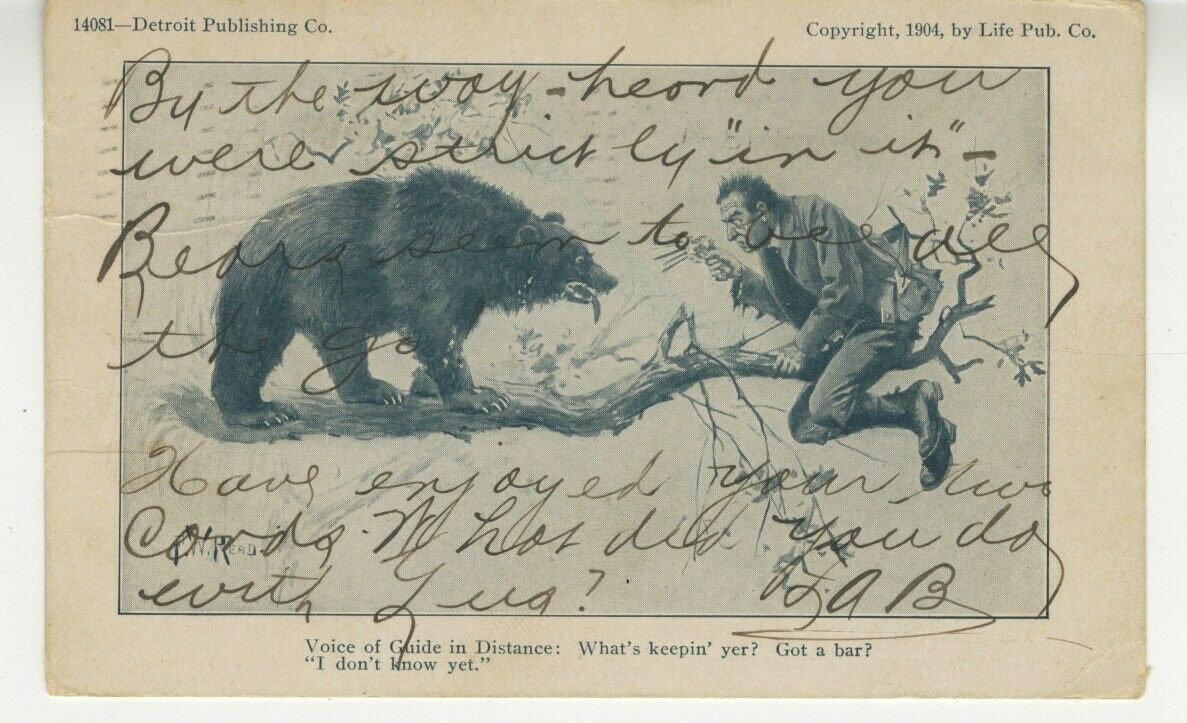 14081—Detroit Publishing Co.
Copyright, 1904, by Life Pub. Co.
By the way - heard you
were strictly "in it" -
Bears seem to be all
the go.
Have enjoyed your two
Cards. What did you do
with ?
A B
Voice of Guide in Distance: What's keepin' yer? Got a bar?
"I don't know yet."